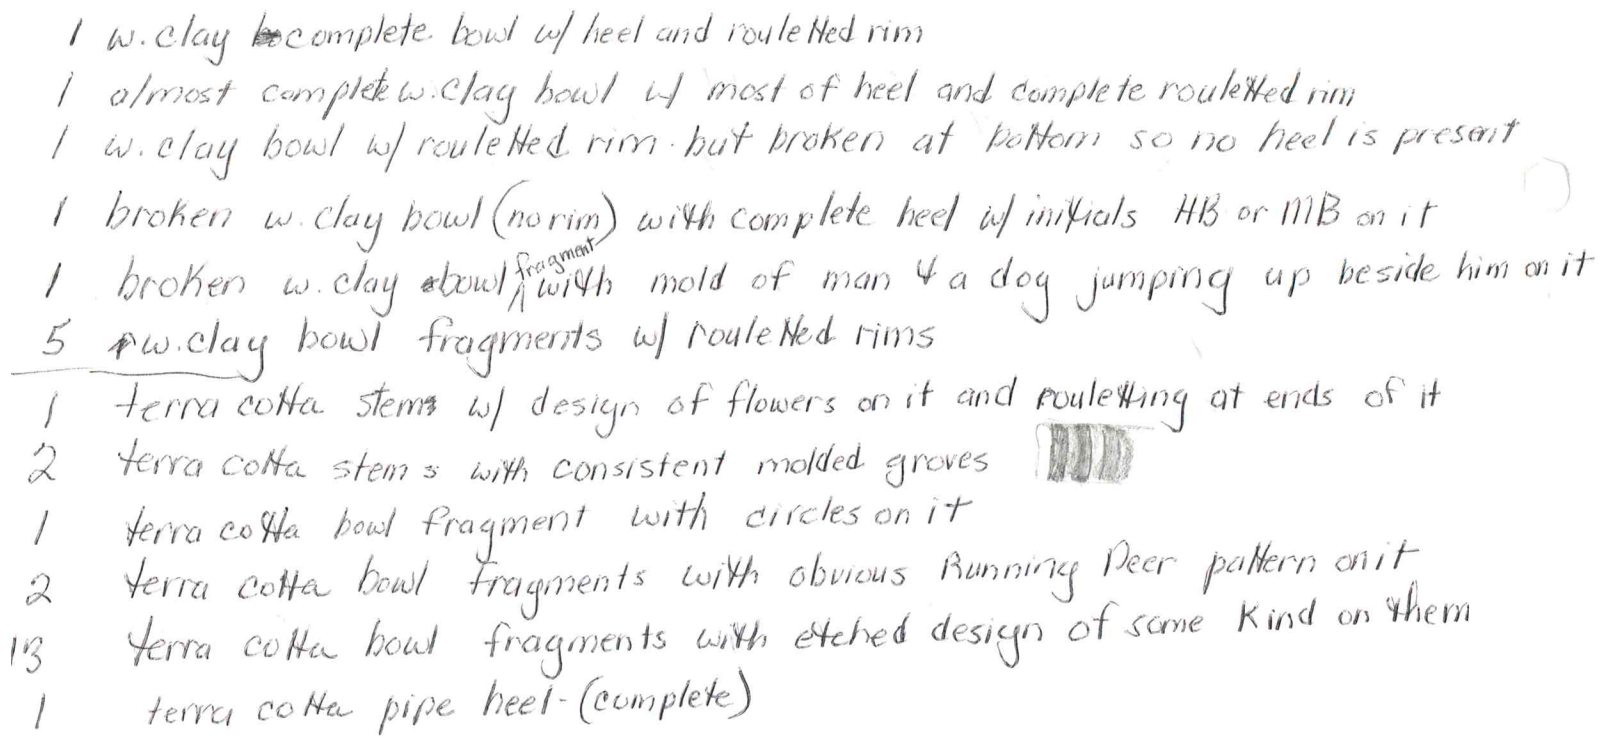 1 w. clay complete bowl w/ heel and rouletted rim
1 almost complete w. clay bowl w/ most of heel and complete rouletted rim
1 w. clay bowl w/ rouletted rim but broken at bottom so no heel is present
1 broken w. clay bowl (no rim) with complete heel w/ initials HB or MB on it
1 broken w. clay bowl fragment with mold of man & a dog jumping up beside him on it
5 w. clay bowl fragments w/ rouletted rims
1 terra cotta stem w/ design of flowers on it and rouletting at ends of it
2 terra cotta stems with consistent molded groves
1 terra cotta bowl fragment with circles on it
2 terra cotta bowl fragments with obvious Running Deer pattern on it
13 terra cotta bowl fragments with etched design of some kind on them
1 terra cotta pipe heel - (complete)